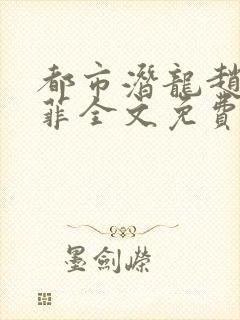 都市潛龍趙
菲全文免費
墨劍嶸